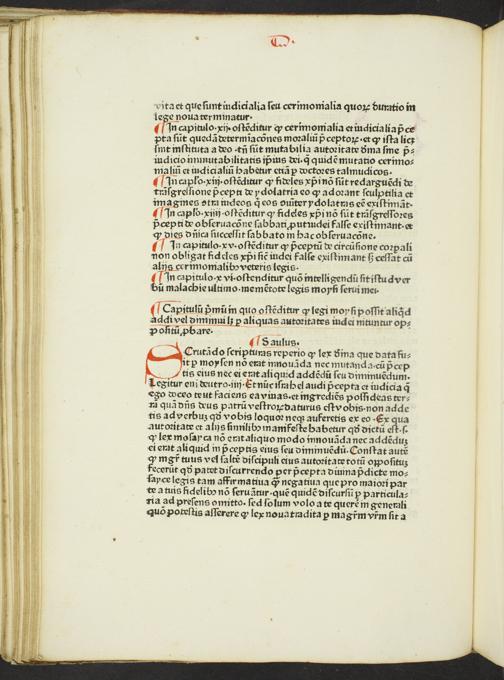 vita et que sunt iudicialia seu cerimonialia quoꝝ duratio in
lege noua terminatur.
¶ In capitulo .xij. oſtēditur ꝙ cerimonialia et iudicialia p̄ce
pta sūt quedā determīacōnes moraliū p̄ceptoꝝ. et ꝙ ista licꝫ
sint instituta a deo. tn̄ sūt mutabilia autoritate dīna sine p̄-
iudicio immutabilitatis ip̄ius dei. q̄ quidē mutatio cerimo-
maliū et iudicialiū habetur etiā ꝑ doctores talmudicos.
¶ In capl̄o .xiij. oſtēditur ꝙ fideles xp̄i nō sūt redarguēdi de
trāsgressione p̄cepti de ydolatria eo ꝙ adorant sculptilia et
imagines otra iudeos q̄ eos oīuiter ydolatras eē existimāt.
¶ In capl̄o .xiiij. oſtēditur ꝙ fideles xp̄i nō sūt trāsgressores
p̄cepti de obseruacōne sabbati, put iudei false existimant. et
ꝙ dies dn̄ica successit sabbato in hac obseruacōne.
¶ In capitulo .xv. oſtēditur ꝙ p̄ceptū de circūsione corpali
non obligat fideles xp̄i sic̄ iudei false existimant sꝫ cessat cū
alijs cerimonialibꝰ veteris legis.
¶ In capitulo .xvi. ostenditur quō intelligendū sit istud ver
bū malachie ultimo. mementote legis moysi serui mei.
¶ Capitulū p̄mū in quo ostēditur ꝙ legi moysi possit aliqd̄
addi vel diminui lꝫ ꝑ aliquas autoritates iudei nituntur op-
positū, pbare.
¶ Saulus.
SCrutādo scripturas reperio ꝙ lex dīna que data fu-
it ꝑ moysen nō erat innouāda nec mutanda. cū p̄cep
tis eius nec ei erat aliquid addēdū seu diminuēdum.
Legitur eni deutro .iiij. Et nūc israhel audi p̄cepta et iudicia q̄
ego doceo te ut faciens ea viuas. et ingrediēs possideas ter-
rā quā dn̄s deus patrū vestroꝝ daturus est vobis. non adde
tis ad verbū qd̄ vobis loquor neqꝫ auferetis ex eo. Ex qua
autoritate et alijs similibꝰ manifeste habetur qd̄ dictū est. s.
ꝙ lex mosayca nō erat aliquo modo innouāda nec addēdū
ei erat aliquid in p̄ceptis eius seu diminuēdū. Constat autē
ꝙ mgr̄ tuus vel saltē discipuli eius autoritate totū oppositū
fecerūt qd̄ patet discurrendo per p̄cepta diuina p̄dicte mo-
sayce legis tam affirmatiua ꝙ̄ negatiua que pro maiori par
te a tuis fidelibꝰ nō seruātur. quē quidē discursū ꝑ particula-
ria ad presens omitto. sed solum volo a te querere in generali
quō potestis asserere ꝙ lex noua tradita ꝑ magr̄m vr̄m sit a